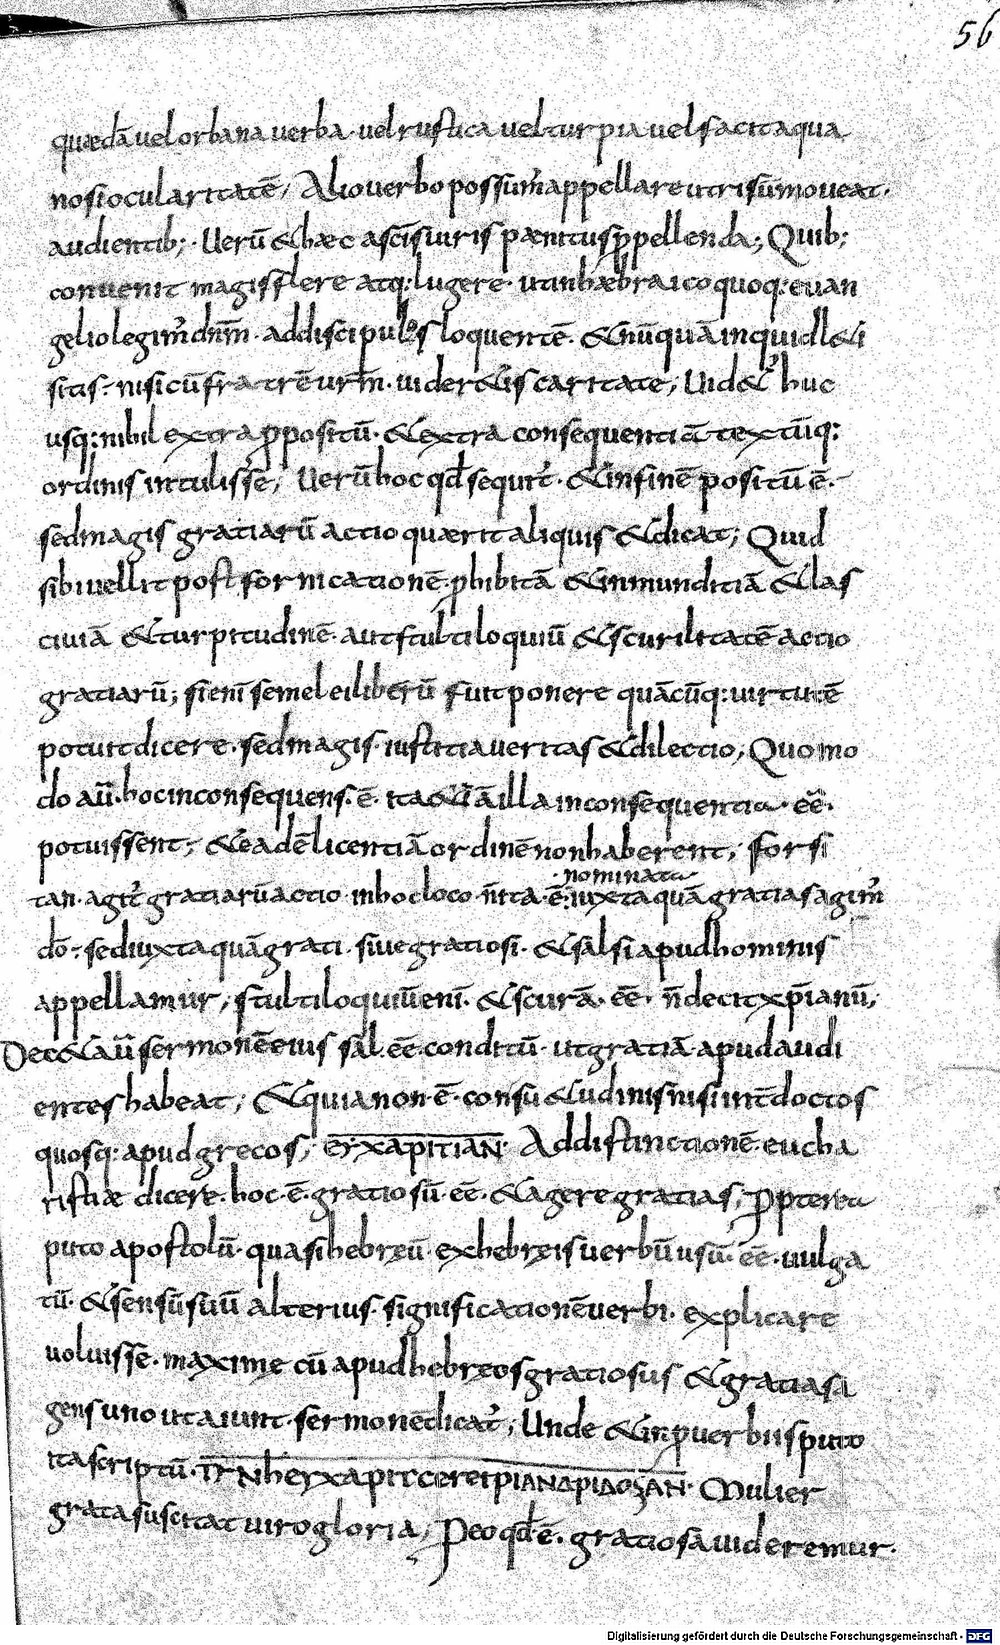 56
quædā uel orbana uerba· uel rustica uel turpia uel facita qua
nos iocularitatē, Alio uerbo possum̃ appellare ut risū moueat·
audientib;· Uerū & hæc a sc̄is uiris pænitus ꝓpellenda; Quib;
conuenit magis flere atq: lugere· ut in hæbraico quoq: euan
gelio legim̃ dnm̄· ad discipulos loquentē· & nūquā inquid l&i
sitis· nisi cū fratrē urm̄· uider&is caritate, Uid&ʼ huc
usq: nihil extra ꝓpositū· & extra consequentiā textūq:
ordinis intulisse, Uerū hoc qđ sequit̃· & in finē positū ē·
sed magis gratiarū actio quærit aliquis & dicat; Quid
sibi uellit post fornicationē ꝓhibitā & inmunditiā & las
ciuiā & turpitudinē· aut stultiloquiū & scurilitatē actio
gratiarū; si enī semel ei liberū fuit ponere quācūq: uirtutē
potuit dicere· sed magis· iustitia ueritas & dilectio, Quomo
do aū· hoc inconsequens· ē· ita & illa inconsequentia· eē·
potuissent, & eadē licentiā ordinē non haberent, forsi
·nominata
tan· agit̃ gratiarū actio in hoc loco n̄ ita· ē· iuxta quā gratias agim̃
dō· sed iuxta quā grati· siue gratiosi· & salsi apud hominis
appellamur, stultiloquiū enī· & scurā· eē· n̄ decit xp̄ianū,
Dec& aū sermonē eius sal· eē conditū· ut gratiā apud audi
entes habeat, & quia non· ē· consu&udinis nisi int̄ doctos
quosq: apud grecos, ΕΥΧΑΡΙΤΙΑΝ· Ad distinctionē eucha
ristiæ dicere· hoc· ē· gratiosū· eē· & agere gratias, Propterea
puto apostolū· quasi hebreū· ex hebreis uerbū usū· eē· uulga
tū· & sensū suū alterius· significationē uerbi· explicare
uoluisse· maxime cū apud hebreos gratiosus & gratias a
gens uno ut aiunt· sermone dicat̃, Unde & in ꝓuerbiis puto
ita scriptū· ΓΥΝheΥΧΑΡΙΤϹΕΓΕΙΡΙΑΝΔΡΙΔΟΞΑΝ· Mulier
grata suscitat uiro gloria, Peo qđ· ē· gratiosa uideremur·
Digitalisierung gefördert durch die Deutsche Forschungsgemeinschaft - DFG